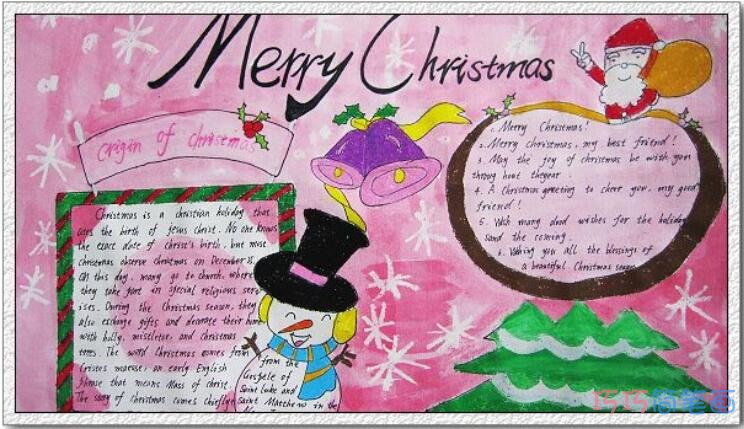 Merry Christmas
origin of christmas
Christmas is a christian holiday that
the birth of Jesus christ. No one knows
the exact date of christ's birth, but most
christmas observe christmas on December 25.
On this day, many go to church, where
they take part in special religious serv-
ises. During the Christmas season, they
also exchange gifts and decorate their home
with holly, mistletoe, and Christmas
trees. The word Christmas comes from
Cristes maesse, an early English
phrase that means Mass of christ.
The story of Christmas comes chiefly
from the
Gospels of
Saint Luke and
Saint Matthew in the
1. Merry Christmas!
2. Merry christmas, my best friend!
3. May the joy of christmas be with you
throug hout theyear.
4. A Christmas greeting to cheer you, my good
friend!
5. Wish many good wishes for the holiday
and the coming.
6. Wishing you all the blessings of
a beautiful Christmas season
巧巧简笔画